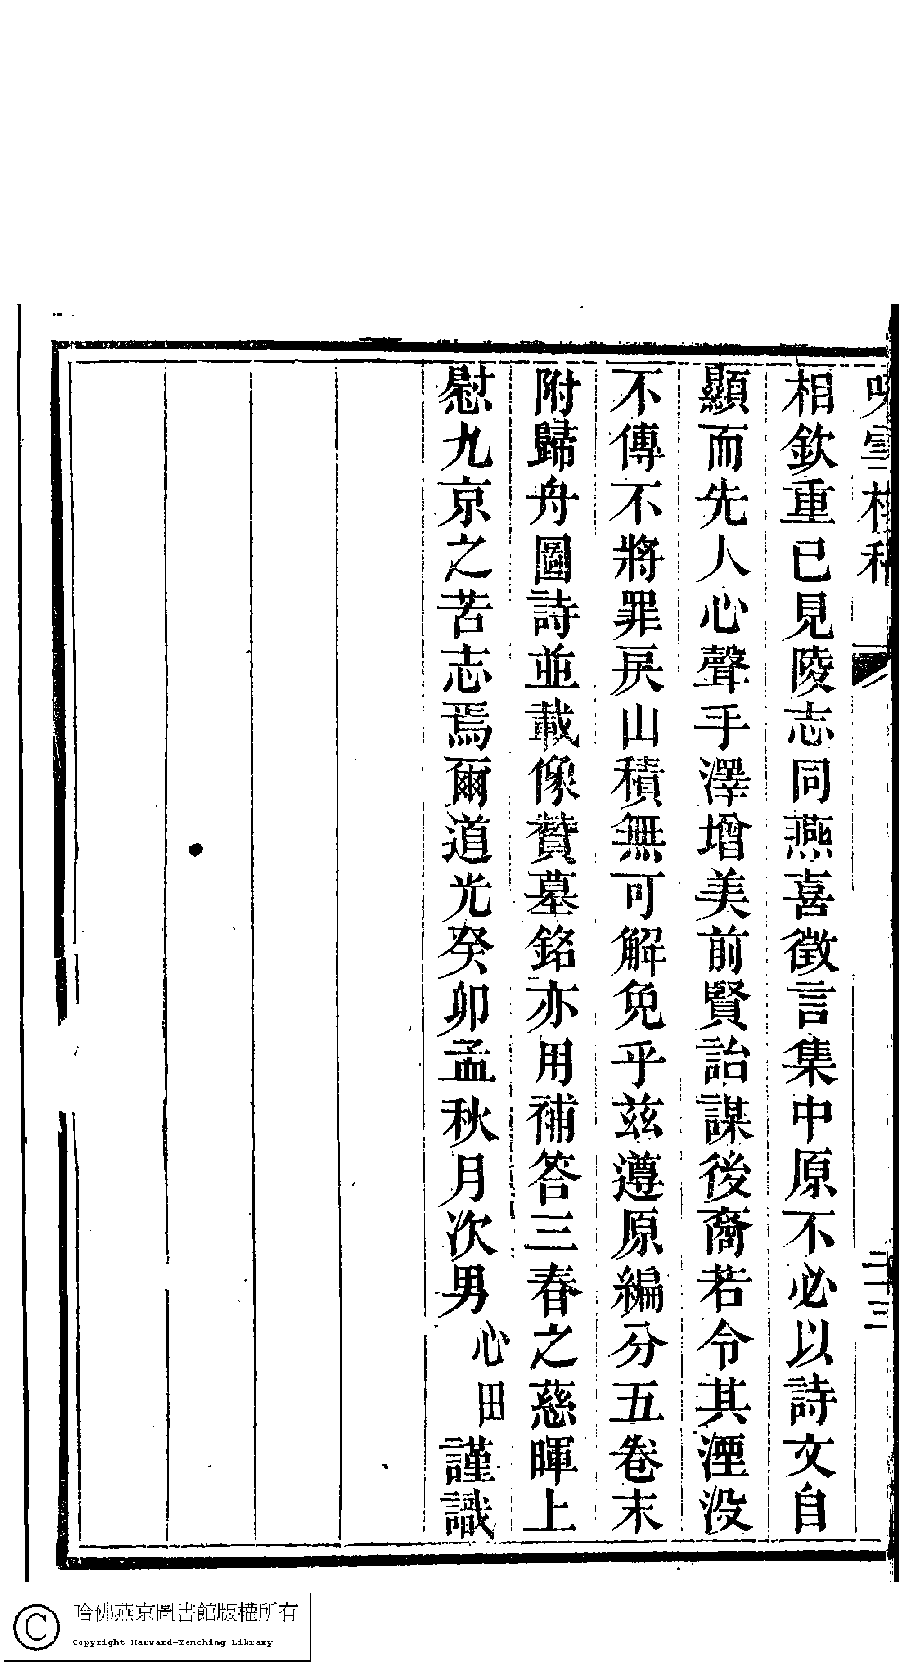 雪
二十三
相欽重已見陵志同燕喜徵言集中原不必以詩文自
顯而先人心聲手澤增美前賢詒謀後裔若令其湮没
不傳不將罪戾山積無可解免乎茲遵原編分五卷末
附歸舟圖詩並載像贊墓銘亦用補答三春之慈暉上
慰九京之苦志焉爾道光癸卯孟秋月次男心田謹識
哈佛燕京圖書館版權所有
Copyright Harvard-Yenching Library